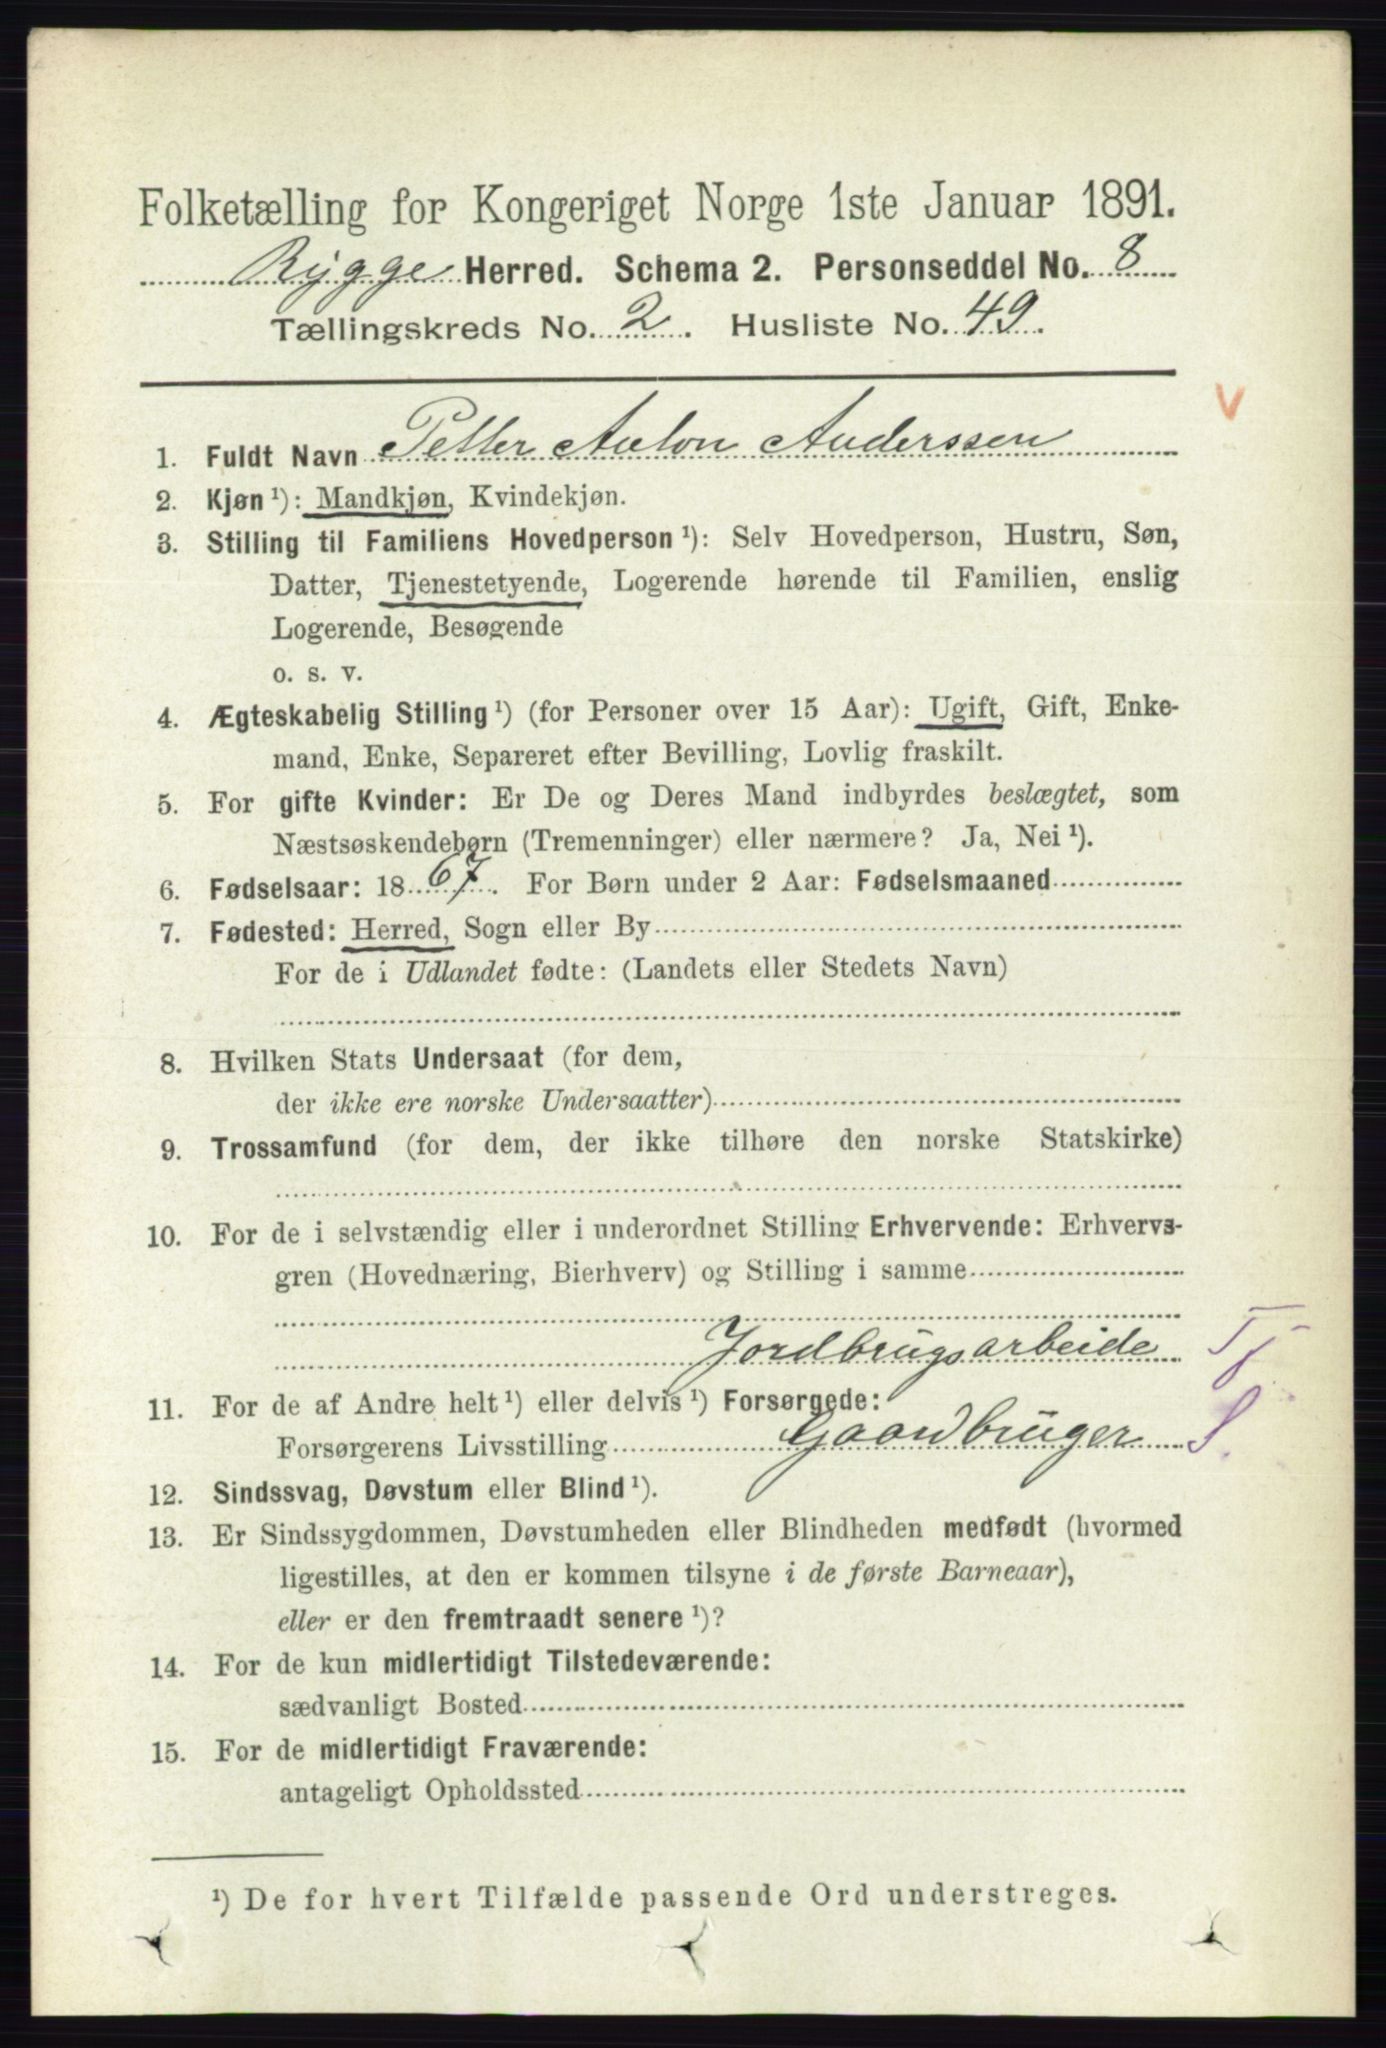 Folketælling for Kongeriget Norge 1ste Januar 1891.
Rygge Herred. Schema 2. Personseddel No. 8
Tællingskreds No. 2. Husliste No. 49.
V
1. Fuldt Navn Petter Anton Anderssen
2. Kjøn ¹): Mandkjøn, Kvindekjøn.
3. Stilling til Familiens Hovedperson ¹): Selv Hovedperson, Hustru, Søn,
Datter, Tjenestetyende, Logerende hørende til Familien, enslig
Logerende, Besøgende
o. s. v.
4. Ægteskabelig Stilling ¹) (for Personer over 15 Aar): Ugift, Gift, Enke-
mand, Enke, Separeret efter Bevilling, Lovlig fraskilt.
5. For gifte Kvinder: Er De og Deres Mand indbyrdes beslægtet, som
Næstsøskendebørn (Tremenninger) eller nærmere? Ja, Nei ¹).
6. Fødselsaar: 1867. For Børn under 2 Aar: Fødselsmaaned
7. Fødested: Herred, Sogn eller By
For de i Udlandet fødte: (Landets eller Stedets Navn)
8. Hvilken Stats Undersaat (for dem,
der ikke ere norske Undersaatter)
9. Trossamfund (for dem, der ikke tilhøre den norske Statskirke)
10. For de i selvstændig eller i underordnet Stilling Erhvervende: Erhvervs-
gren (Hovednæring, Bierhverv) og Stilling i samme
Jordbrugsarbeide Tj
11. For de af Andre helt ¹) eller delvis ¹) Forsørgede:
Forsørgerens Livsstilling Gaardbruger S.
12. Sindssvag, Døvstum eller Blind ¹).
13. Er Sindssygdommen, Døvstumheden eller Blindheden medfødt (hvormed
ligestilles, at den er kommen tilsyne i de første Barneaar),
eller er den fremtraadt senere ¹)?
14. For de kun midlertidigt Tilstedeværende:
sædvanligt Bosted
15. For de midlertidigt Fraværende:
antageligt Opholdssted
¹) De for hvert Tilfælde passende Ord understreges.